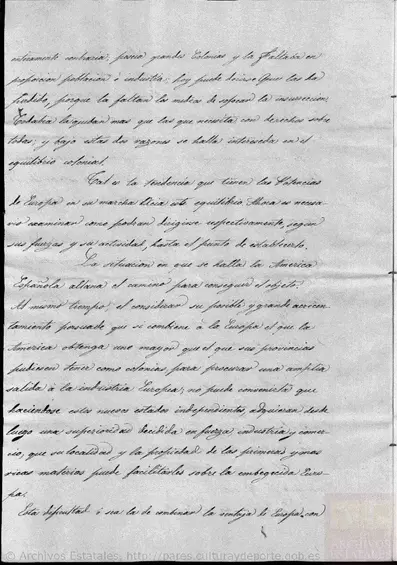 enteramente contraria; poseia grandes Colonias y la faltaba en
proporcion poblacion é industria; hoy puede decirse que las ha
perdido, porque la faltan los medios de sofocar la insurreccion;
Todabia la quedan mas que las que necesita con derechos sobre
todas; y bajo estas dos razones se halla interesada en el
equilibrio colonial.
Tal es la tendencia que tienen las Potencias
de Europa en su marcha ácia este equilibrio. Ahora es necesa-
rio examinar como podran dirigirse respectivamente, segun
sus fuerzas y su actividad, hasta el punto de establecerlo.
La situacion en que se halla la America
Española allana el camino para conseguir el objeto.
Al mismo tiempo, el considerar su posible y grande acrecen-
tamiento persuade que si combiene á la Europa el que la
America obtenga uno mayor que el que sus provincias
pudiesen tener como colonias, para procurar una amplia
salida á la industria Europea; no puede convenirla que
haciendose estos nuevos estados independientes, adquieran desde
luego una superioridad decidida en fuerza, industria y comer-
cio, que su localidad y la propiedad de las primeras y mas
ricas materias puede facilitarles sobre la embegecida Euro-
pa.
Esta dificultad ó sea la de combinar la ventaja de Europa con
© Archivos Estatales, http://pares.culturaydeporte.gob.es